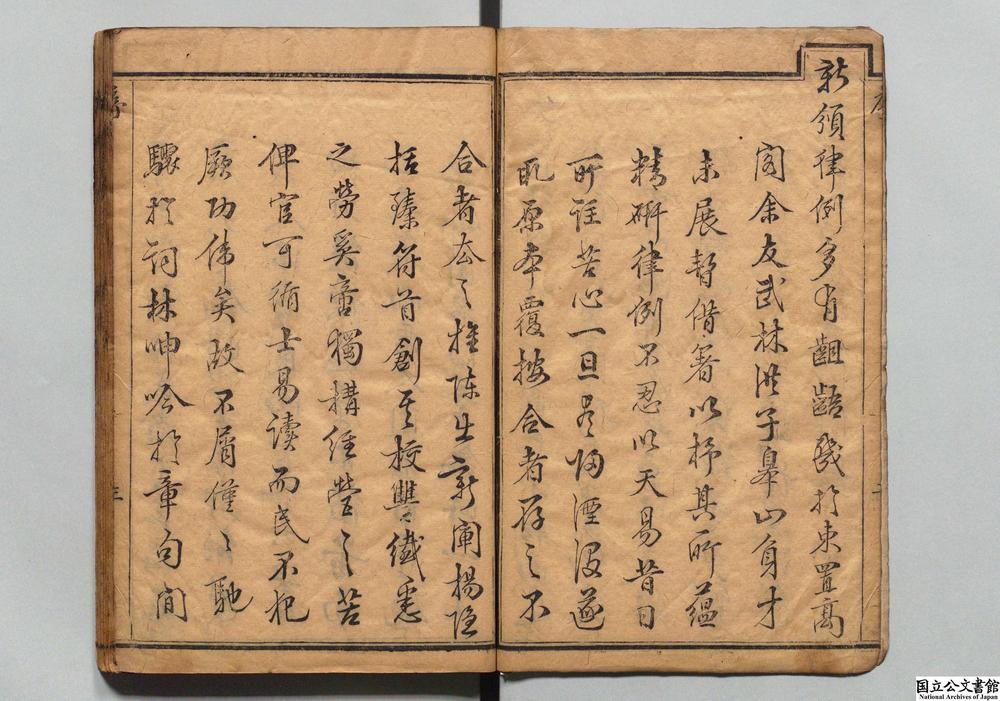 新頒律例多有齟齬幾於束置高
閣余友武林洪子皋山負才
未展暫借箸以抒其所蘊
精研律例不忍以天易昔日
所註苦心一旦盡歸湮沒遂
既原本覆按合者存之不
合者去之推陳出新闡揚隱
括臻符首創其校讐纖悉
之勞奚啻獨構經營之苦
俾官可循士易讀而民不犯
厥功偉矣故不屑僅〻馳
驟於詞林呻吟於章句間
序
三
国立公文書館
National Archives of Japan